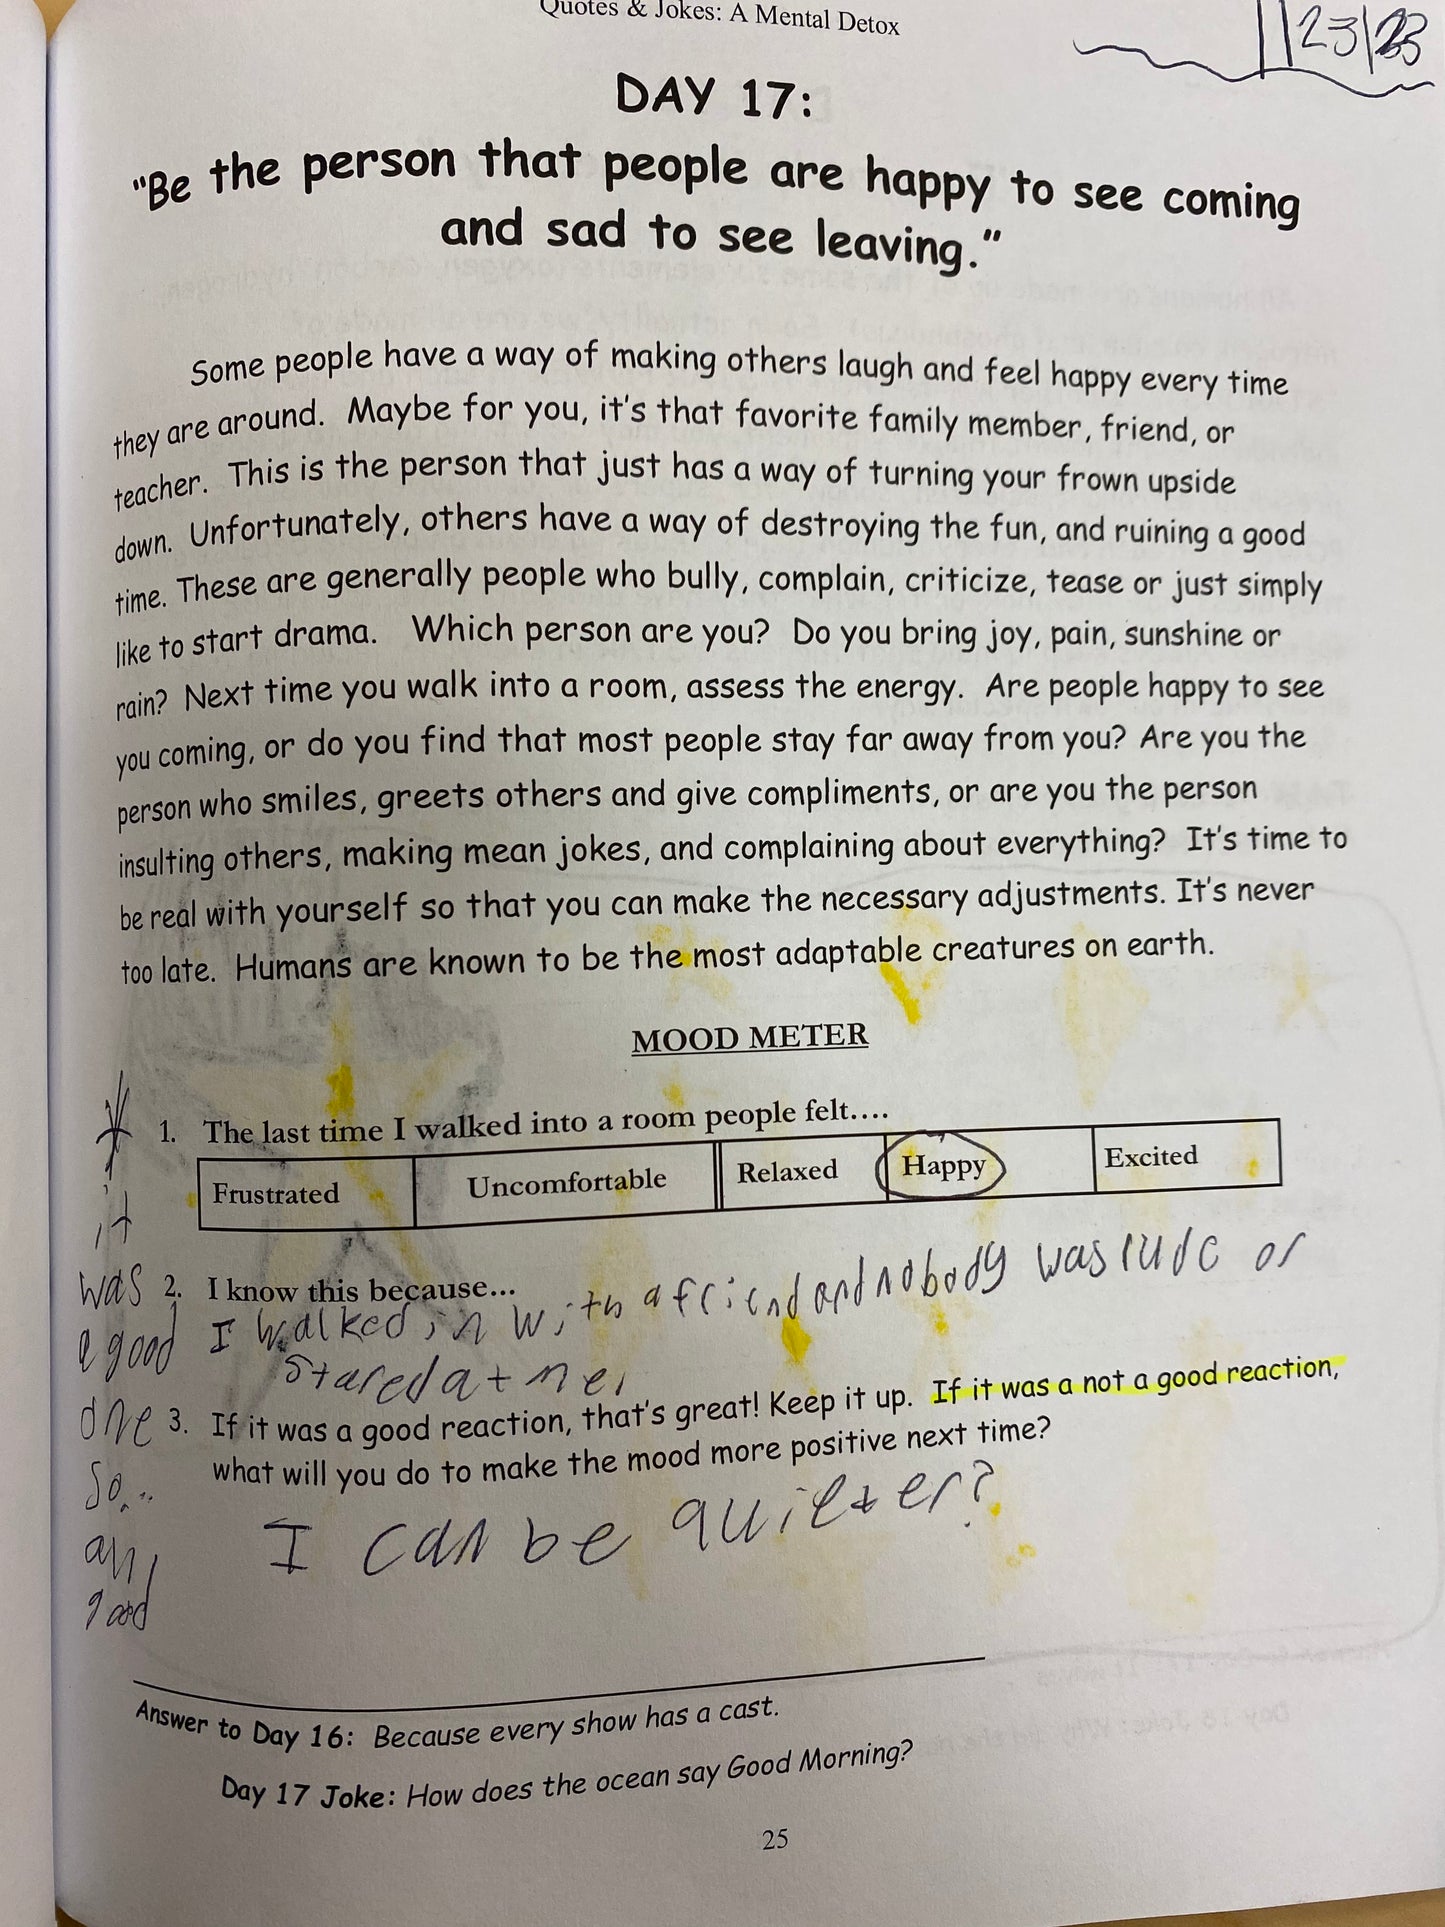 Quotes & Jokes: A Mental Detox
1/23/23
DAY 17:
"Be the person that people are happy to see coming
and sad to see leaving."
Some people have a way of making others laugh and feel happy every time
they are around. Maybe for you, it's that favorite family member, friend, or
teacher. This is the person that just has a way of turning your frown upside
down. Unfortunately, others have a way of destroying the fun, and ruining a good
time. These are generally people who bully, complain, criticize, tease or just simply
like to start drama. Which person are you? Do you bring joy, pain, sunshine or
rain? Next time you walk into a room, assess the energy. Are people happy to see
you coming, or do you find that most people stay far away from you? Are you the
person who smiles, greets others and give compliments, or are you the person
insulting others, making mean jokes, and complaining about everything? It's time to
be real with yourself so that you can make the necessary adjustments. It's never
too late. Humans are known to be the most adaptable creatures on earth.
MOOD METER
1. The last time I walked into a room people felt....
Frustrated Uncomfortable Relaxed Happy Excited
2. I know this because...
I walked in with a friend and nobody was rude or
stared at me.
3. If it was a good reaction, that's great! Keep it up. If it was a not a good reaction,
what will you do to make the mood more positive next time?
I can be quieter?
it
was
a good
one
So...
all
good
Answer to Day 16: Because every show has a cast.
Day 17 Joke: How does the ocean say Good Morning?
25